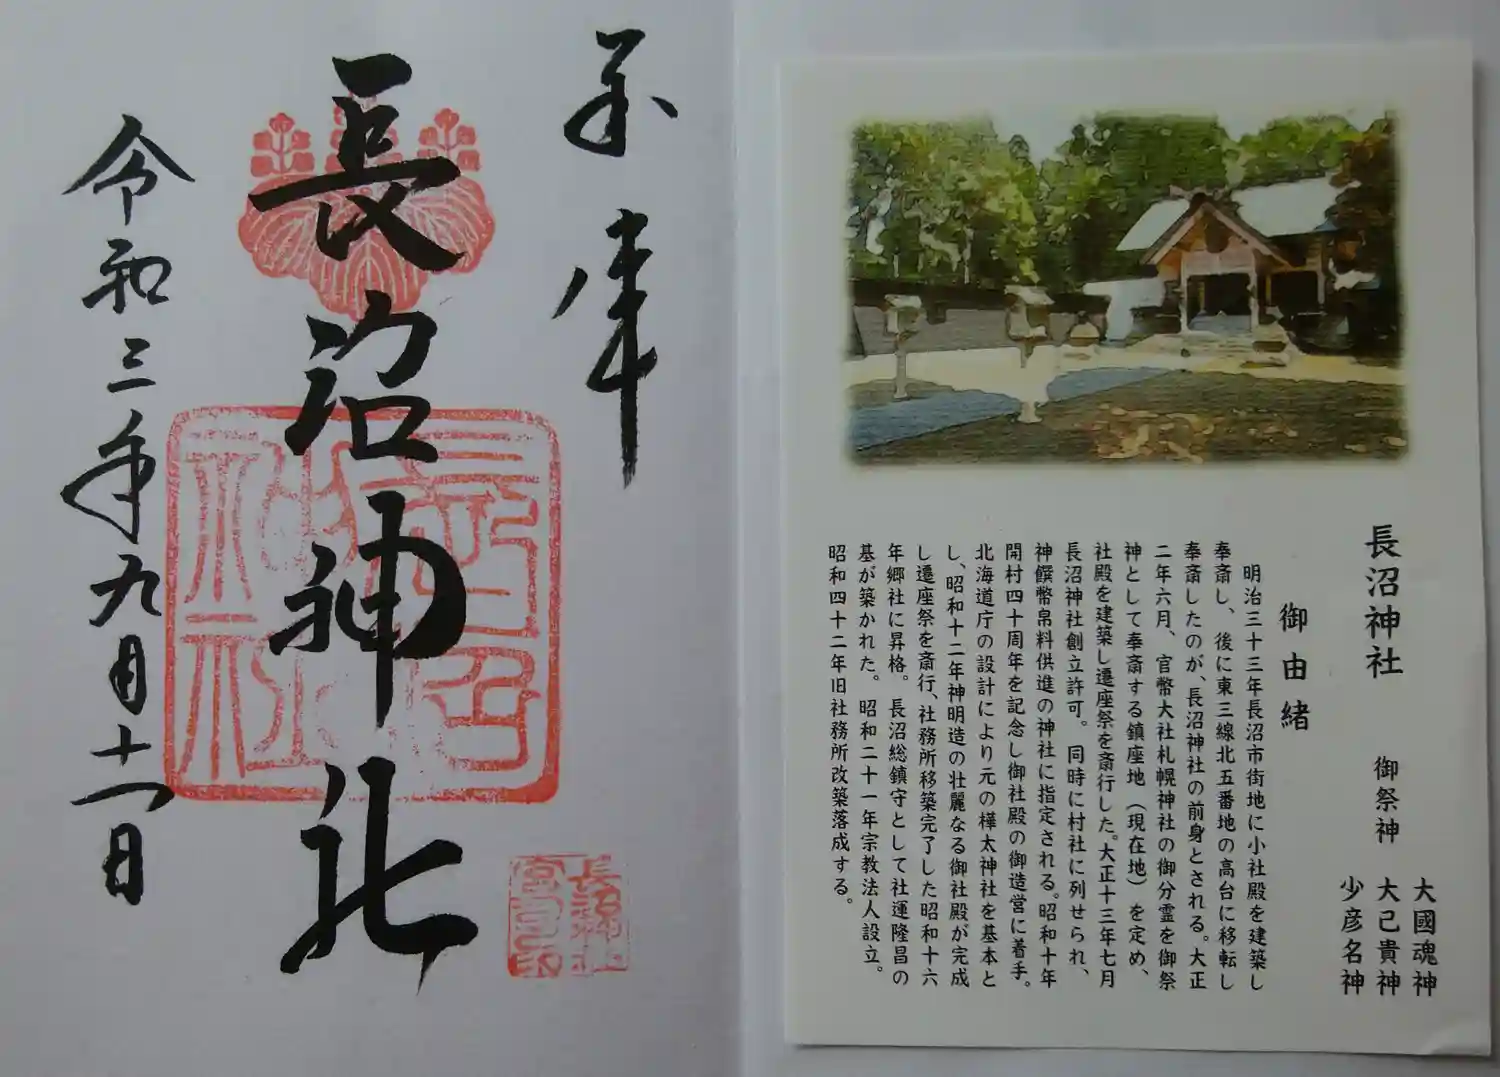 奉拝
長沼神社
令和三年九月十一日
長沼神社
御祭神
大國魂神
大己貴神
少彦名神
御由緒
明治三十三年長沼市街地に小社殿を建築し
奉斎し、後に東三線北五番地の高台に移転し
奉斎したのが、長沼神社の前身とされる。大正
二年六月、官幣大社札幌神社の御分霊を御祭
神として奉斎する鎮座地（現在地）を定め、
社殿を建築し遷座祭を斎行した。大正十三年七月
長沼神社創立許可。同時に村社に列せられ、
神饌幣帛料供進の神社に指定される。昭和十年
開村四十周年を記念し御社殿の御造営に着手。
北海道庁の設計により元の樺太神社を基本と
し、昭和十二年神明造の壮麗なる御社殿が完成
し遷座祭を斎行、社務所移築完了した昭和十六
年郷社に昇格。長沼総鎮守として社運隆昌の
基が築かれた。昭和二十一年宗教法人設立。
昭和四十二年旧社務所改築落成する。